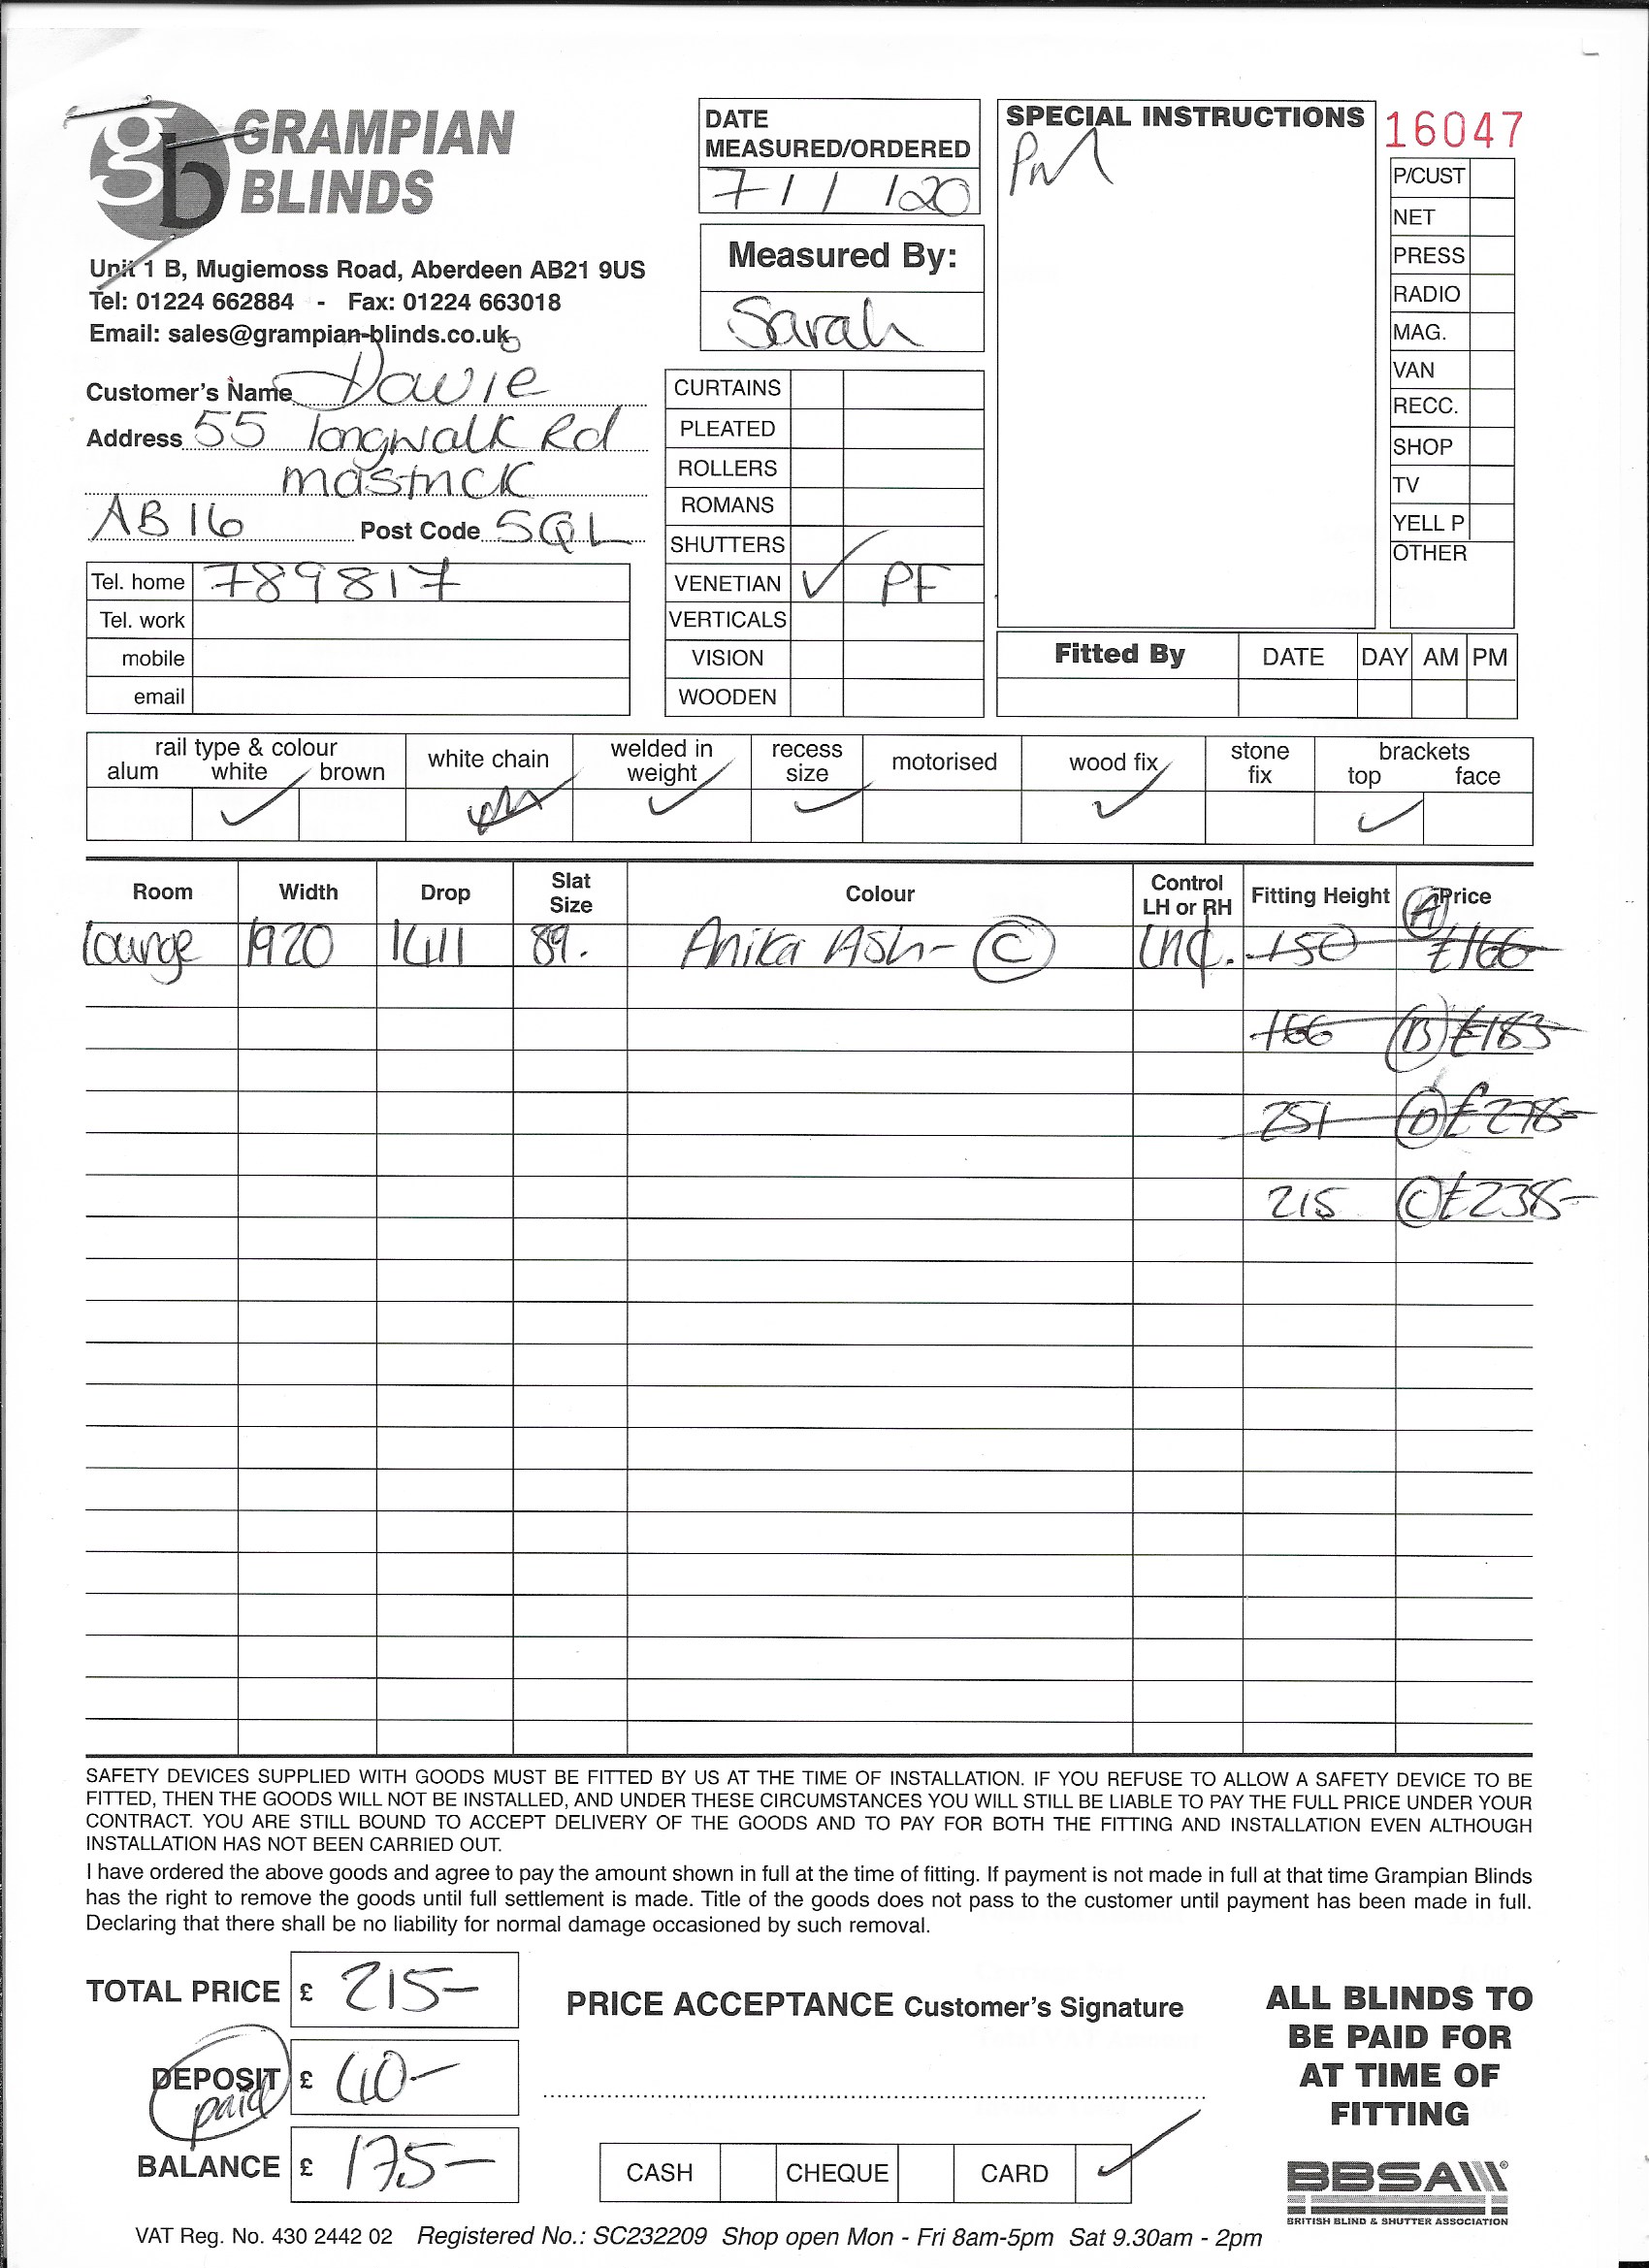 gb GRAMPIAN BLINDS
Unit 1 B, Mugiemoss Road, Aberdeen AB21 9US
Tel: 01224 662884 - Fax: 01224 663018
Email: sales@grampian-blinds.co.uk
Customer's Name Davie
Address 55 longwalk Rd
mastrick
AB16 Post Code 5QL
Tel. home 789817
Tel. work
mobile
email
DATE
MEASURED/ORDERED
7/1/20
Measured By:
Sarah
CURTAINS
PLEATED
ROLLERS
ROMANS
SHUTTERS
VENETIAN ✓ PF
VERTICALS
VISION
WOODEN
SPECIAL INSTRUCTIONS
PM
16047
P/CUST
NET
PRESS
RADIO
MAG.
VAN
RECC.
SHOP
TV
YELL P
OTHER
Fitted By DATE DAY AM PM
rail type & colour
alum white brown
white chain
welded in weight
recess size
motorised
wood fix
stone fix
brackets
top face
Room Width Drop Slat Size Colour Control LH or RH Fitting Height Price
Lounge 1920 1411 89. Anika Ash - C 150 A £166
166 B £183
251 D £278-
215 C £238-
SAFETY DEVICES SUPPLIED WITH GOODS MUST BE FITTED BY US AT THE TIME OF INSTALLATION. IF YOU REFUSE TO ALLOW A SAFETY DEVICE TO BE
FITTED, THEN THE GOODS WILL NOT BE INSTALLED, AND UNDER THESE CIRCUMSTANCES YOU WILL STILL BE LIABLE TO PAY THE FULL PRICE UNDER YOUR
CONTRACT. YOU ARE STILL BOUND TO ACCEPT DELIVERY OF THE GOODS AND TO PAY FOR BOTH THE FITTING AND INSTALLATION EVEN ALTHOUGH
INSTALLATION HAS NOT BEEN CARRIED OUT.
I have ordered the above goods and agree to pay the amount shown in full at the time of fitting. If payment is not made in full at that time Grampian Blinds
has the right to remove the goods until full settlement is made. Title of the goods does not pass to the customer until payment has been made in full.
Declaring that there shall be no liability for normal damage occasioned by such removal.
TOTAL PRICE £ 215-
DEPOSIT £ 40-
paid
BALANCE £ 175-
PRICE ACCEPTANCE Customer's Signature
CASH CHEQUE CARD ✓
ALL BLINDS TO
BE PAID FOR
AT TIME OF
FITTING
BBSA
BRITISH BLIND & SHUTTER ASSOCIATION
VAT Reg. No. 430 2442 02 Registered No.: SC232209 Shop open Mon - Fri 8am-5pm Sat 9.30am - 2pm